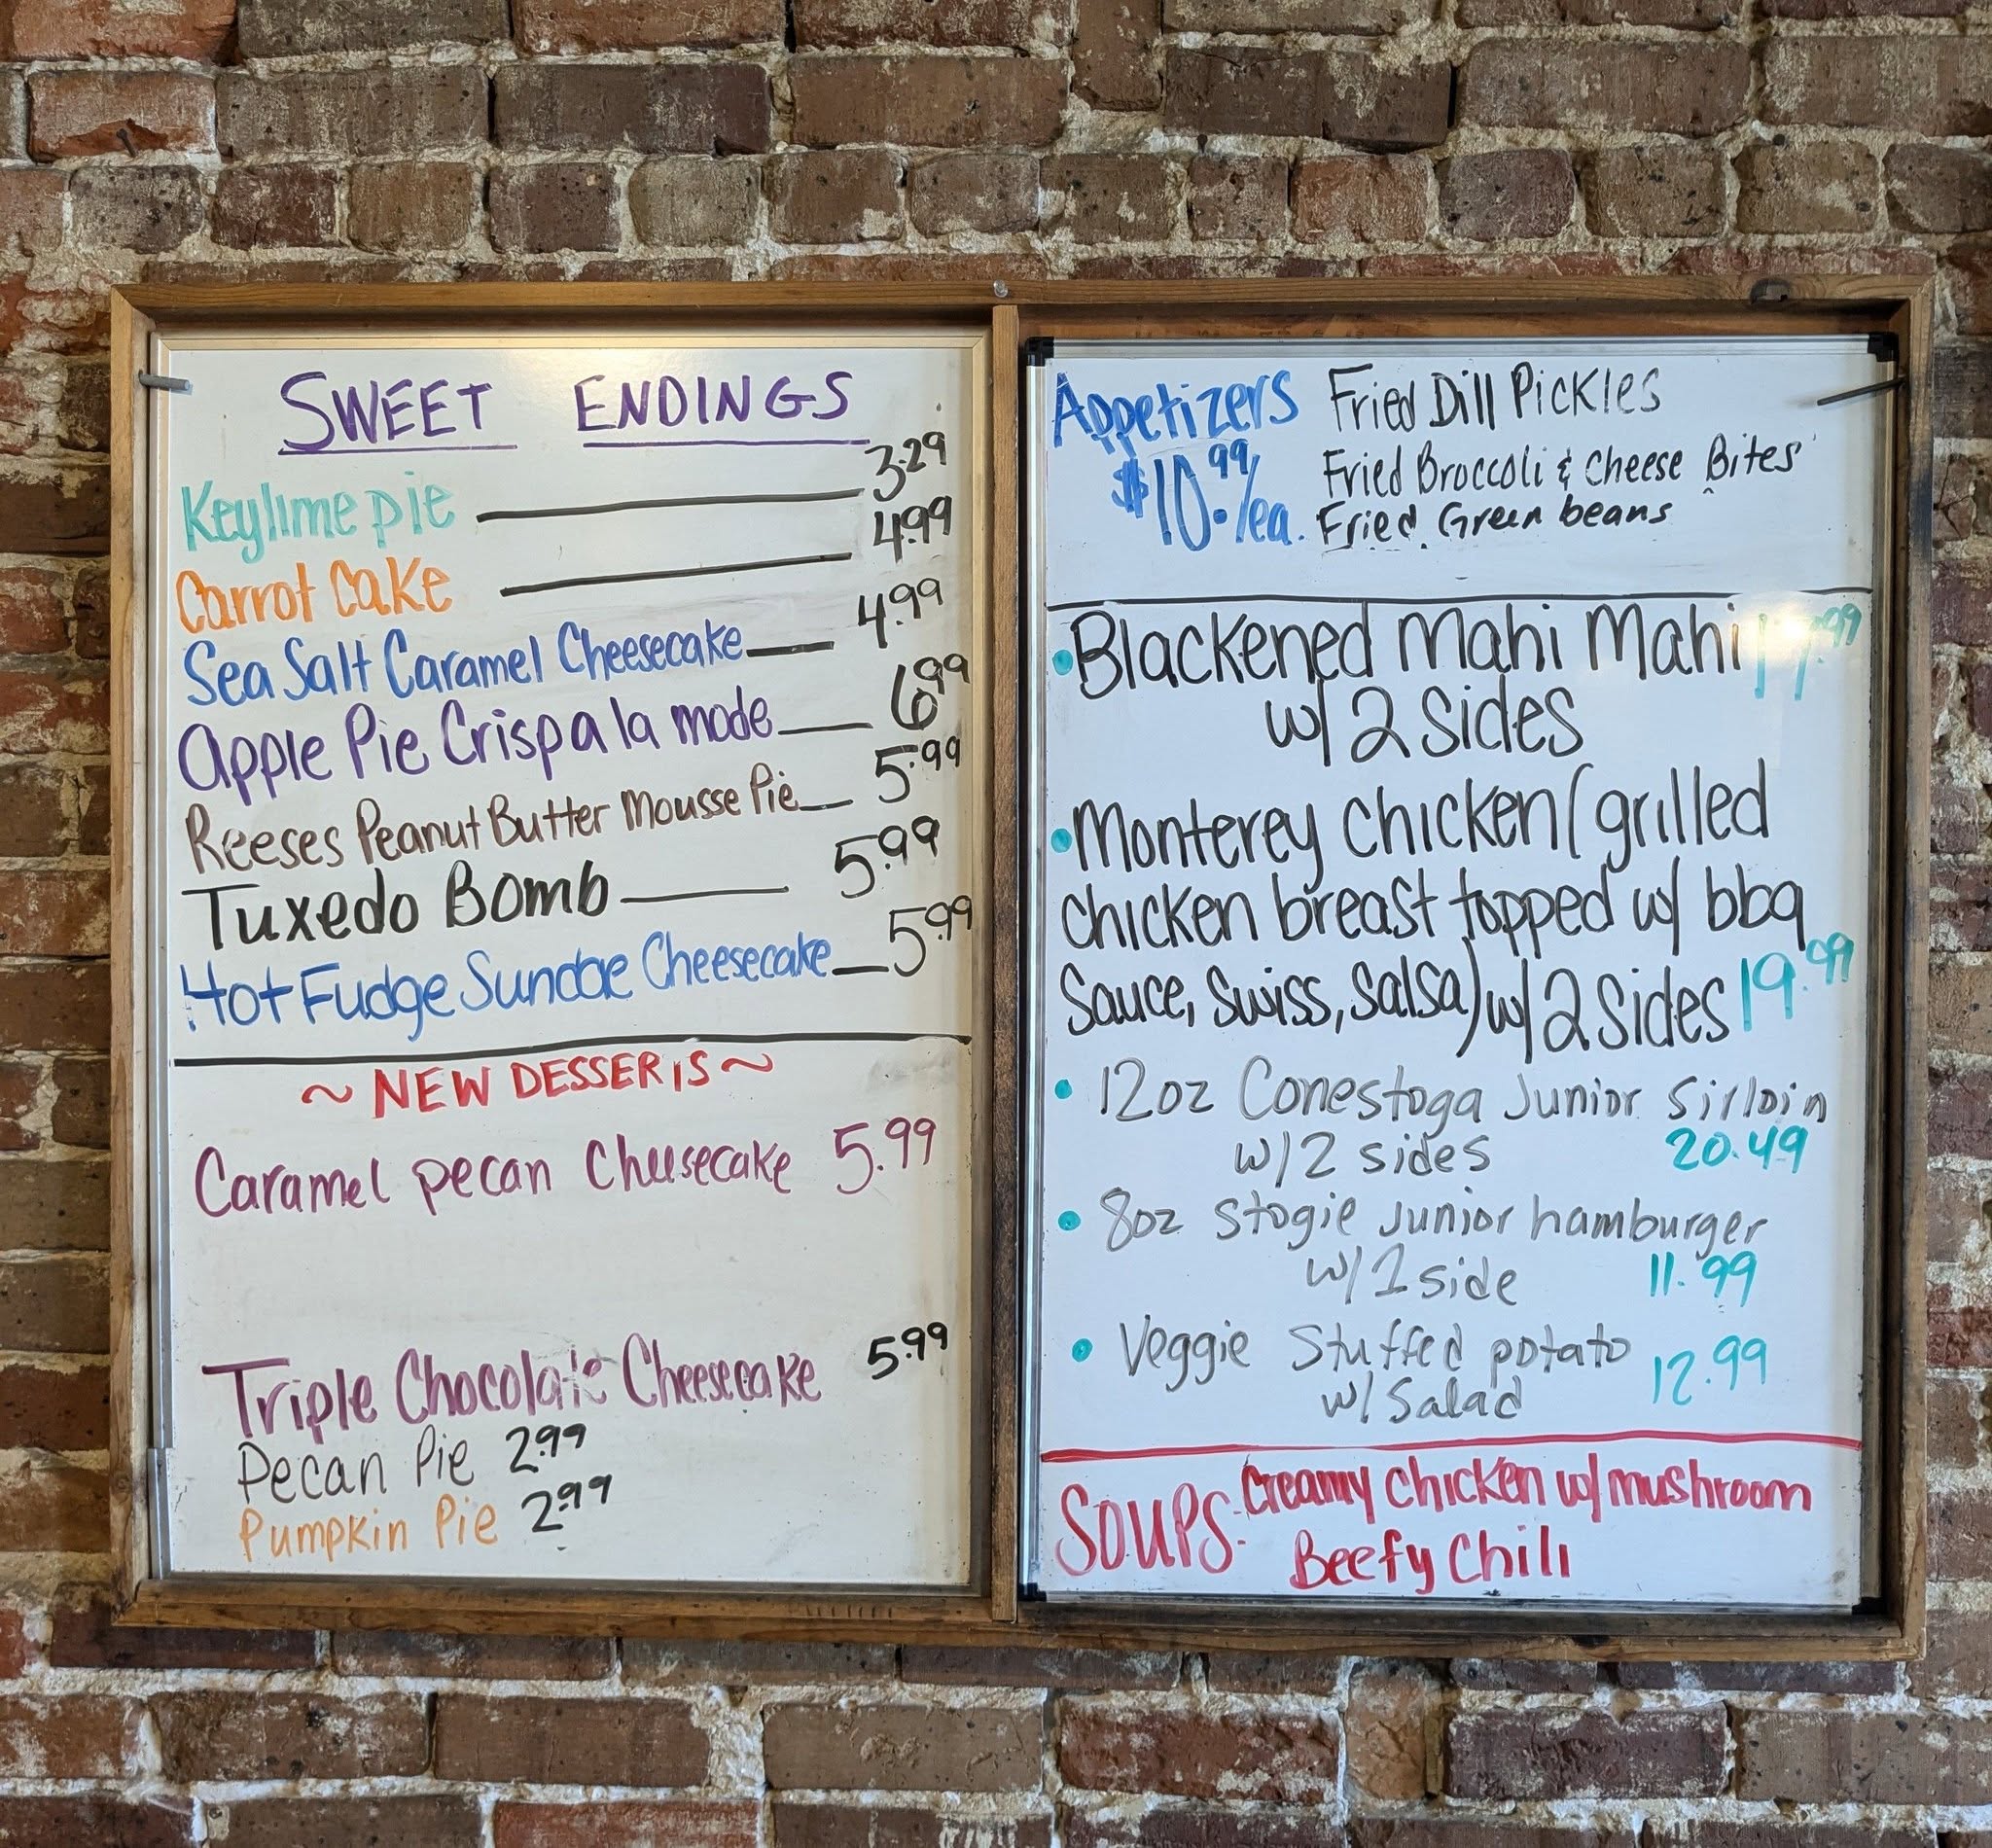 SWEET ENDINGS
Keylime pie 3.29
Carrot Cake 4.99
Sea Salt Caramel Cheesecake 4.99
Apple Pie Crisp a la mode 6.99
Reeses Peanut Butter Mousse Pie 5.99
Tuxedo Bomb 5.99
Hot Fudge Sundae Cheesecake 5.99
~ NEW DESSERTS ~
Caramel pecan Cheesecake 5.99
Triple Chocolate Cheesecake 5.99
Pecan Pie 2.99
Pumpkin Pie 2.99
Appetizers Fried Dill Pickles
$10.99/ea. Fried Broccoli & Cheese Bites
Fried Green beans
• Blackened Mahi Mahi 17.99
w/ 2 sides
• Monterey Chicken (grilled
chicken breast topped w/ bbq
Sauce, Swiss, Salsa) w/ 2 sides 19.99
• 12oz Conestoga Junior Sirloin
w/ 2 sides 20.49
• 8oz Stogie Junior hamburger
w/ 1 side 11.99
• Veggie Stuffed potato
w/ Salad 12.99
Soups: Creamy Chicken w/ mushroom
Beefy Chili